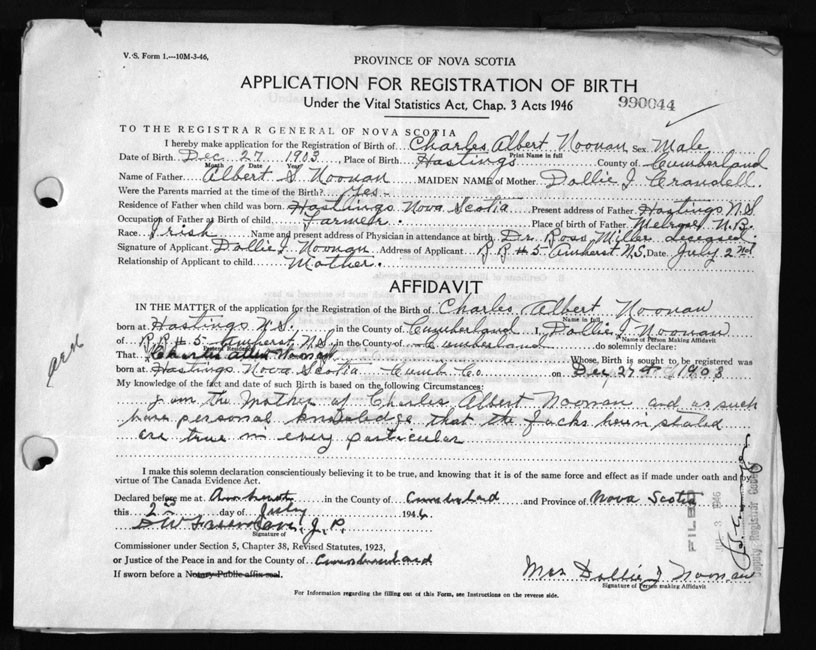 V. S. Form 1.—10M-3-46,
PROVINCE OF NOVA SCOTIA
APPLICATION FOR REGISTRATION OF BIRTH
Under the Vital Statistics Act, Chap. 3 Acts 1946
990044
TO THE REGISTRAR GENERAL OF NOVA SCOTIA
I hereby make application for the Registration of Birth of Charles Albert Noonan Sex Male
Print Name in full
Date of Birth Dec 27 1903, Place of Birth Hastings County of Cumberland
Month Day Year
Name of Father Albert S Noonan MAIDEN NAME of Mother Dollie J Crandell.
Were the Parents married at the time of the Birth? Yes.
Residence of Father when child was born. Hastings Nova Scotia Present address of Father. Hastings N.S
Occupation of Father at Birth of child. Farmer. Place of birth of Father. Melrose N.B.
Race Irish Name and present address of Physician in attendance at birth. Dr. Ross Miller
Signature of Applicant Dollie J Noonan Address of Applicant R R # 5 Amherst N.S, Date July 2nd
Relationship of Applicant to child Mother.
AFFIDAVIT
IN THE MATTER of the application for the Registration of the Birth of Charles Albert Noonan
Name in full
born at Hastings N.S. in the County of Cumberland I, Dollie J Noonan
Name of Person Making Affidavit
of R R # 5 Amherst N.S. in the County of Cumberland do solemnly declare:
That Charles Noonan Whose Birth is sought to be registered was
born at Hastings Nova Scotia Cumb Co on Dec 27th 1903
My knowledge of the fact and date of such Birth is based on the following Circumstances:
I am the Mother of Charles Albert Noonan and as such
have personal knowledge that the facks herin stated
are true in every particular
I make this solemn declaration conscientiously believing it to be true, and knowing that it is of the same force and effect as if made under oath and by
virtue of The Canada Evidence Act.
Declared before me at Amherst in the County of Cumberland and Province of Nova Scotia
this 2nd day of July 1946
J. P.
Signature of
Commissioner under Section 5, Chapter 38, Revised Statutes, 1923,
or Justice of the Peace in and for the County of Cumberland
If sworn before a Notary Public affix seal.
Mrs Dollie J Noonan
Signature of Person making Affidavit
For Information regarding the filling out of this Form, see Instructions on the reverse side.
FILED
3 1946
Deputy Registrar General